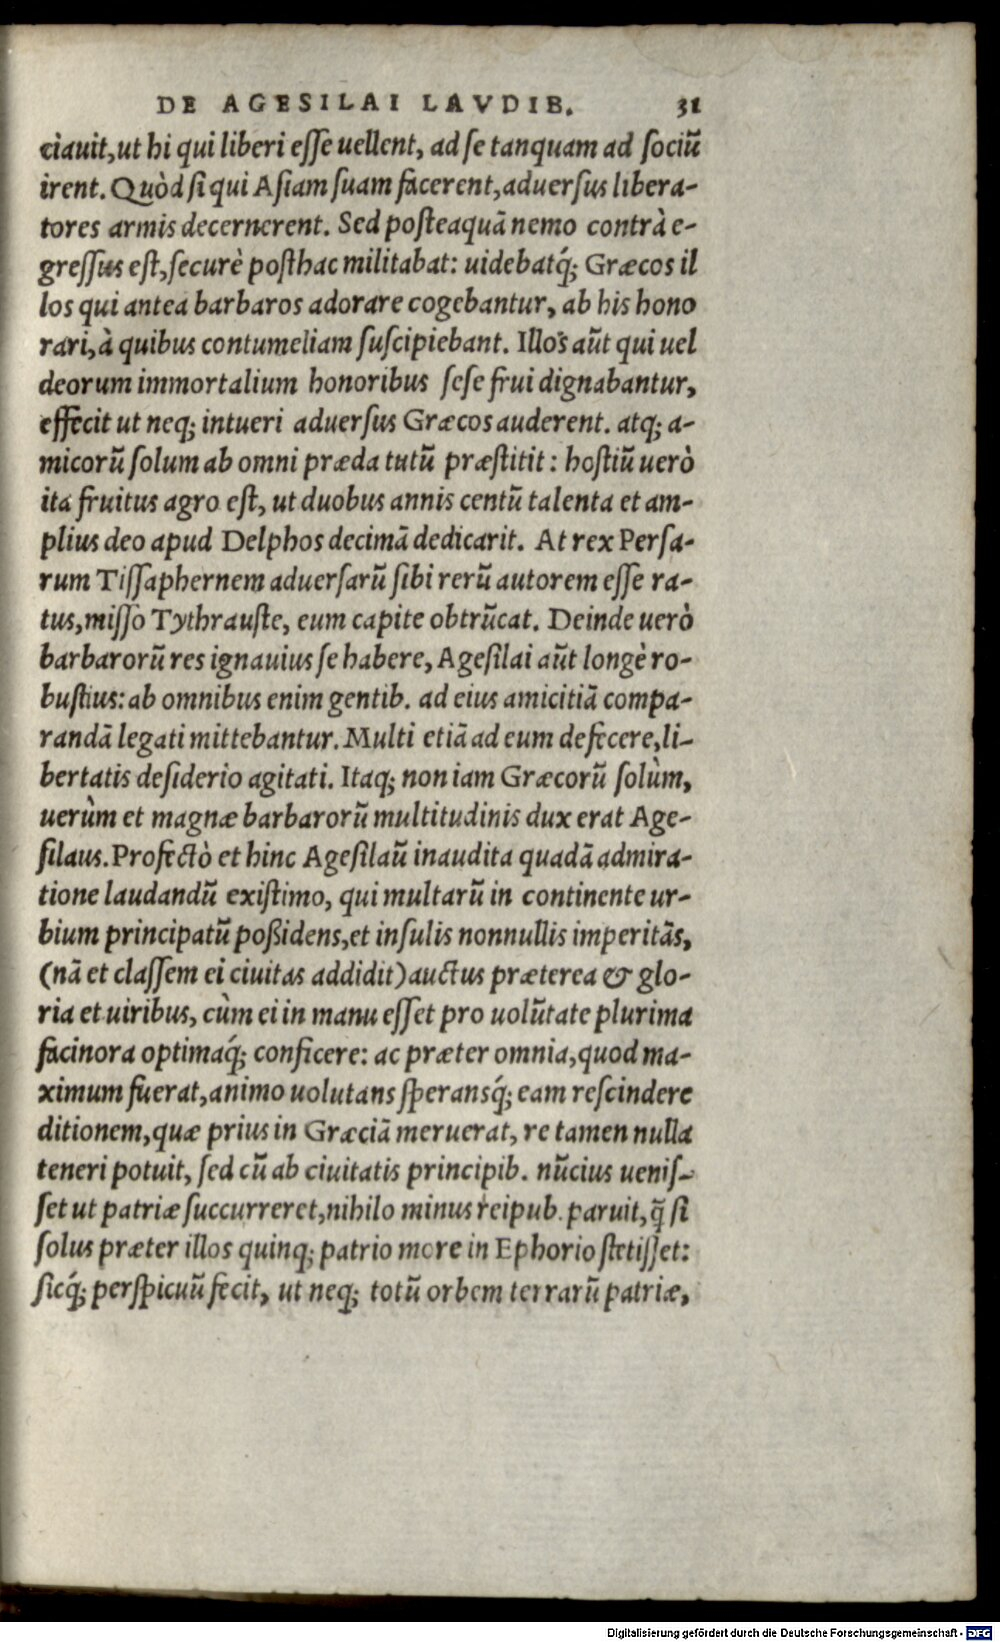 DE AGESILAI LAVDIB. 31
ciauit, ut hi qui liberi esse uellent, ad se tanquam ad sociũ
irent. Quòd si qui Asiam suam facerent, aduersus libera-
tores armis decernerent. Sed posteaquã nemo contrà e-
gressus est, securè posthac militabat: uidebatq́; Græcos il
los qui antea barbaros adorare cogebantur, ab his hono
rari, à quibus contumeliam suscipiebant. Illos aũt qui uel
deorum immortalium honoribus sese frui dignabantur,
effecit ut neq; intueri aduersus Græcos auderent. atq; a-
micorũ solum ab omni præda tutũ præstitit: hostiũ uerò
ita fruitus agro est, ut duobus annis centũ talenta et am-
plius deo apud Delphos decimã dedicarit. At rex Persa-
rum Tissaphernem aduersarũ sibi rerũ autorem esse ra-
tus, misso Tythrauste, eum capite obtrũcat. Deinde uerò
barbarorũ res ignauius se habere, Agesilai aũt longè ro-
bustius: ab omnibus enim gentib. ad eius amicitiã compa-
randã legati mittebantur. Multi etiã ad eum defecere, li-
bertatis desiderio agitati. Itaq; non iam Græcorũ solùm,
uerùm et magnæ barbarorũ multitudinis dux erat Age-
silaus. Profectò et hinc Agesilaũ inaudita quadã admira-
tione laudandũ existimo, qui multarũ in continente ur-
bium principatũ poßidens, et insulis nonnullis imperitãs,
(nã et classem ei ciuitas addidit) auctus præterea & glo-
ria et uiribus, cùm ei in manu esset pro uolũtate plurima
facinora optimaq́; conficere: ac præter omnia, quod ma-
ximum fuerat, animo uolutans speransq́; eam rescindere
ditionem, quæ prius in Græciã meruerat, re tamen nulla
teneri potuit, sed cũ ab ciuitatis principib. nũcius uenis-
set ut patriæ succurreret, nihilo minus reipub. paruit, q̃ si
solus præter illos quinq; patrio more in Ephorio stetisset:
sicq́; perspicuũ fecit, ut neq; totũ orbem terrarũ patriæ,
Digitalisierung gefördert durch die Deutsche Forschungsgemeinschaft - DFG